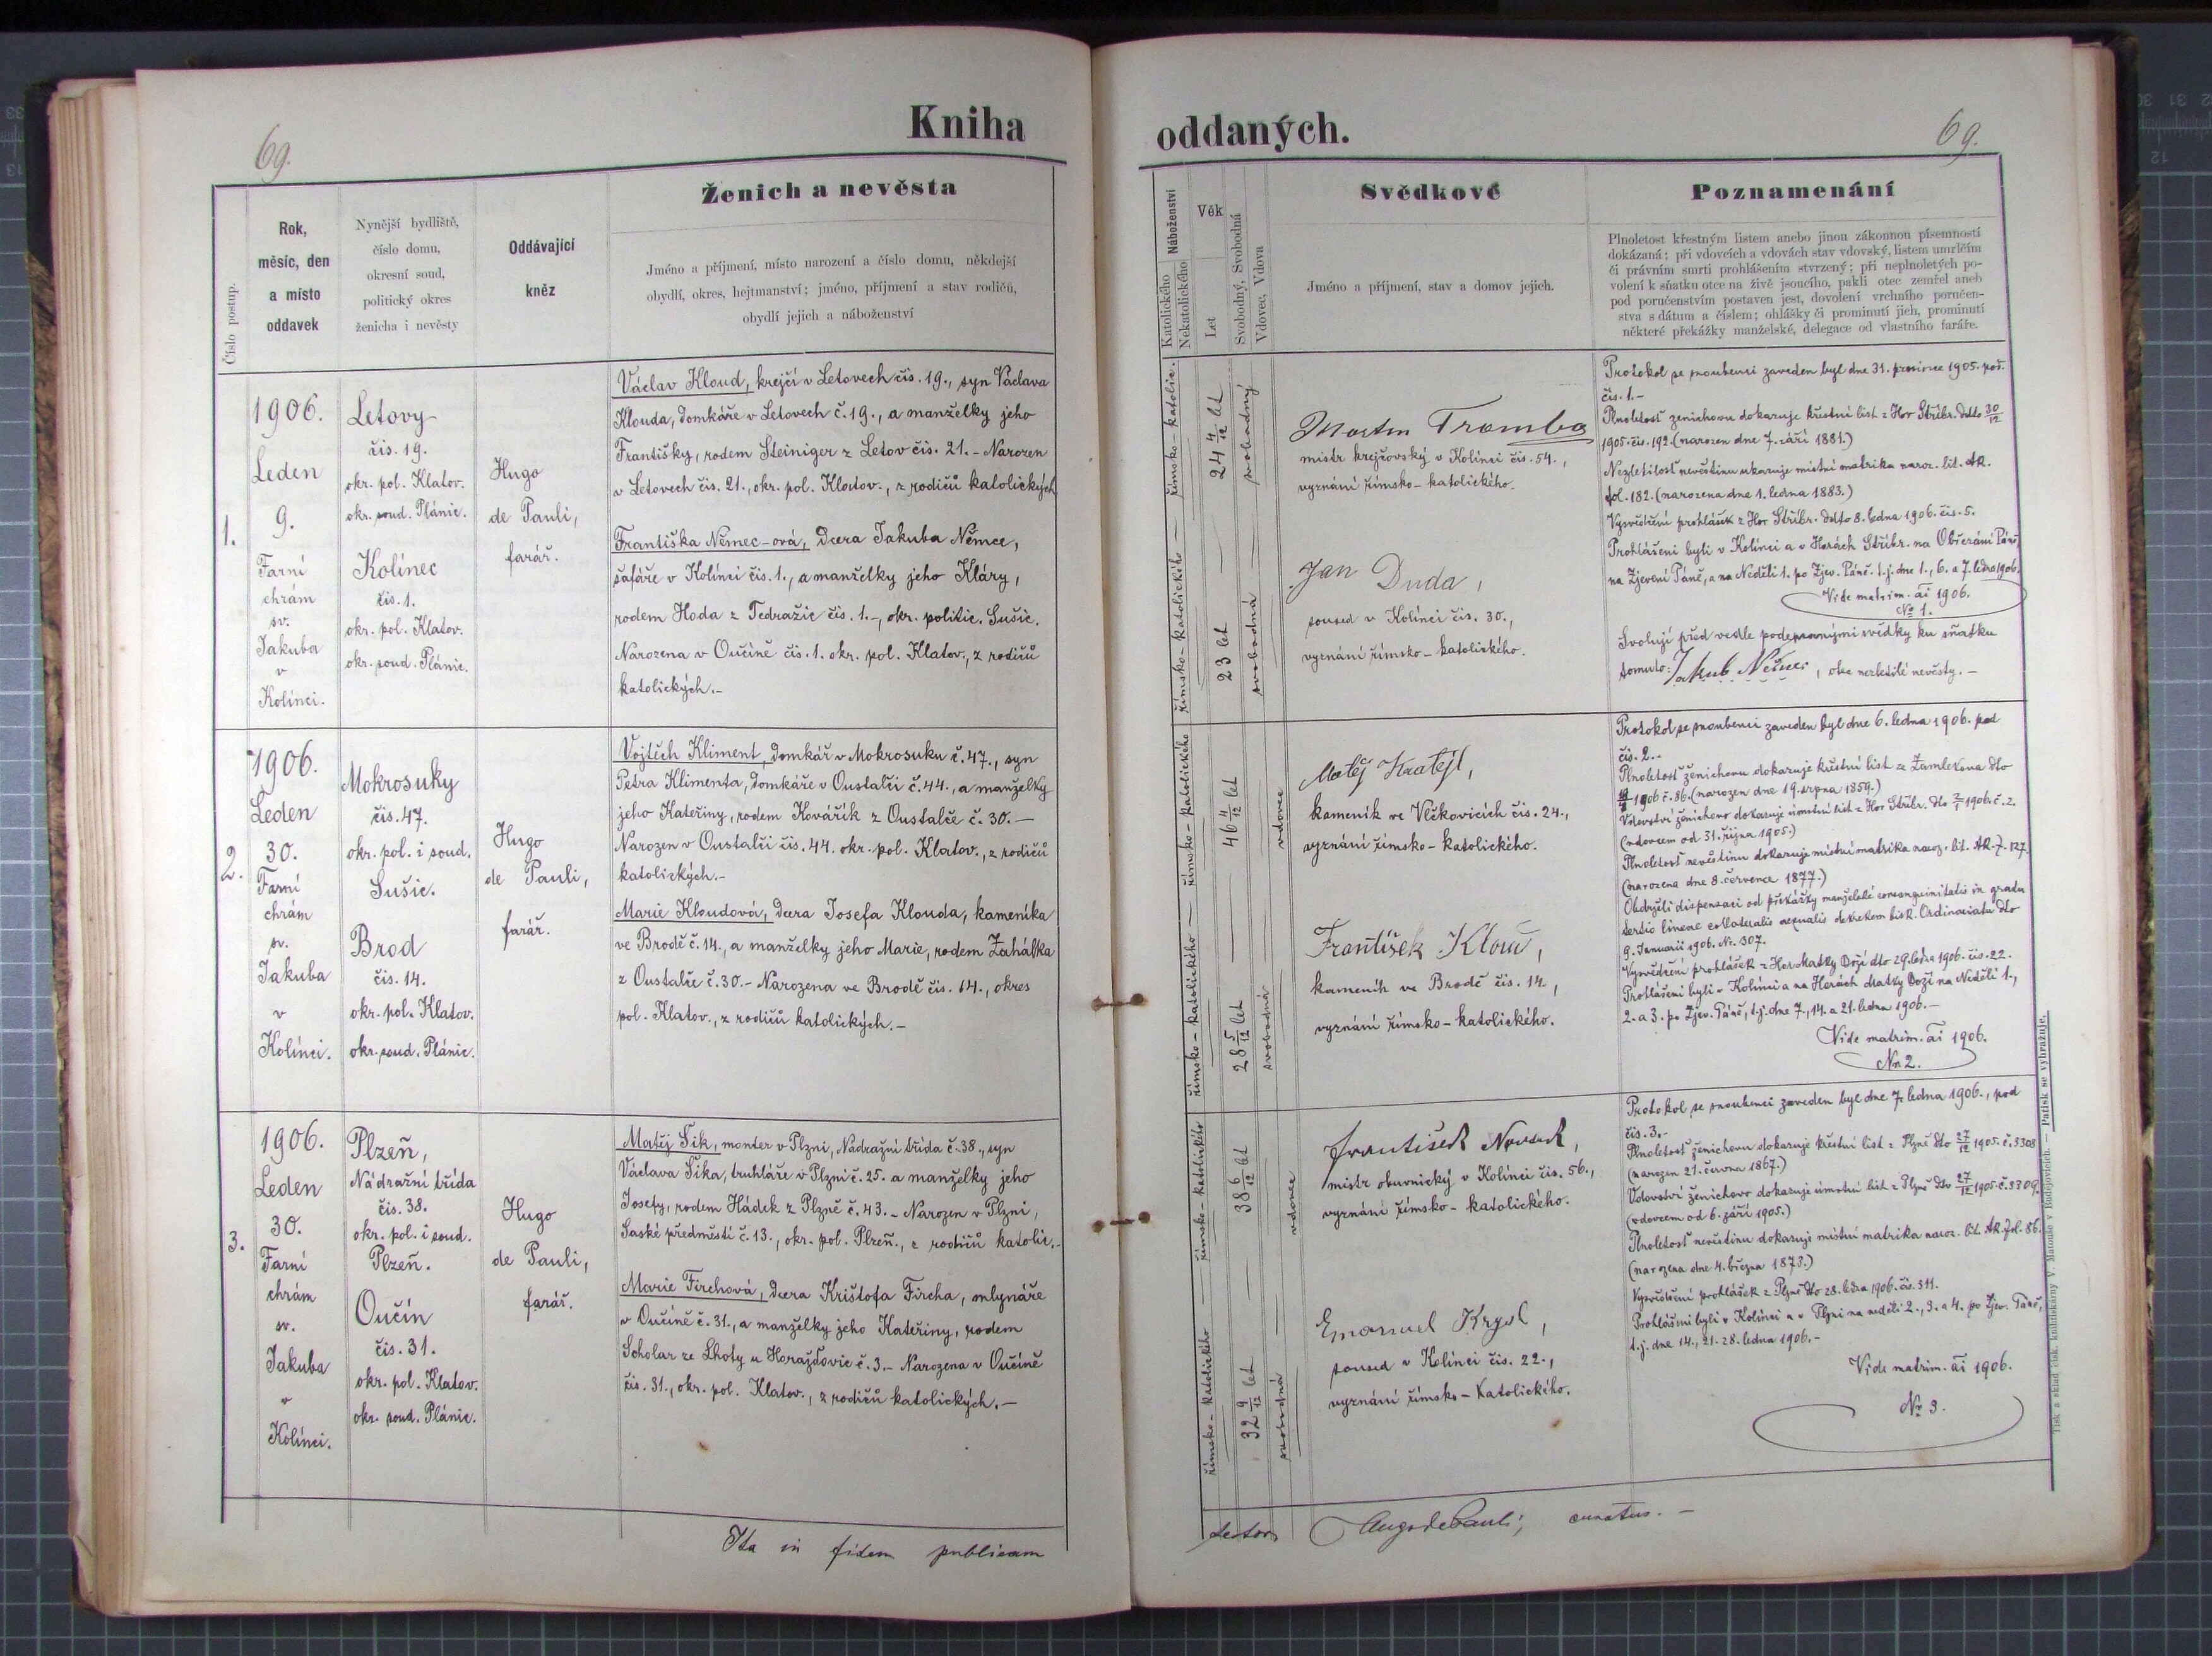 69.
Kniha
Číslo postup.
Rok,
měsíc, den
a místo
oddavek
Nynější bydliště,
číslo domu,
okresní soud,
politický okres
ženicha i nevěsty
Oddávající
kněz
Ženich a nevěsta
Jméno a příjmení, místo narození a číslo domu, někdejší
obydlí, okres, hejtmanství; jméno, příjmení a stav rodičů,
obydlí jejich a náboženství
1.
1906.
Leden
9.
Farní
chrám
sv.
Jakuba
v
Kolínci.
Letovy
čis. 19.
okr. pol. Klatov.
okr. soud. Plánic.
Kolínec
čis. 1.
okr. pol. Klatov.
okr. soud. Plánic.
Hugo
de Pauli,
farář.
Václav Kloud, krejčí v Letovech čis. 19., syn Václava
Klouda, domkáře v Letovech č. 19., a manželky jeho
Františky, rodem Steiniger z Letov čis. 21. - Narozen
v Letovech čis. 21., okr. pol. Klatov., z rodičů katolických
Františka Němec-ová, dcera Jakuba Němce,
šafáře v Kolínci čis. 1., a manželky jeho Kláry,
rodem Hoda z Tedražic čis. 1.-, okr. politic. Sušic.
Narozena v Oučíně čis. 1. okr. pol. Klatov., z rodičů
katolických.-
2.
1906.
Leden
30.
Farní
chrám
sv.
Jakuba
v
Kolínci.
Mokrosuky
čis. 47.
okr. pol. i soud.
Sušic.
Brod
čis. 14.
okr. pol. Klatov.
okr. soud. Plánic.
Hugo
de Pauli,
farář.
Vojtěch Kliment, domkář v Mokrosuku č. 47., syn
Petra Klimenta, domkáře v Oustalči č. 44., a manželky
jeho Kateřiny, rodem Kovářík z Oustalče č. 30. —
Narozen v Oustalči čis. 44. okr. pol. Klatov., z rodičů
katolických.-
Marie Kloudová, dcera Josefa Klouda, kameníka
ve Brodě č. 14., a manželky jeho Marie, rodem Zahálka
z Oustalče č. 30.- Narozena ve Brodě čis. 14., okres
pol. Klatov., z rodičů katolických.-
3.
1906.
Leden
30.
Farní
chrám
sv.
Jakuba
v
Kolínci.
Plzeň,
Nádražní třída
čis. 38.
okr. pol. i soud.
Plzeň.
Oučín
čis. 31.
okr. pol. Klatov.
okr. soud. Plánic.
Hugo
de Pauli,
farář.
Matěj Šik, monter v Plzni, Nádražní třída č. 38., syn
Václava Šika, truhláře v Plzni č. 25. a manželky jeho
Josefy, rodem Hádek z Plzně č. 43. - Narozen v Plzni,
Saské předměstí č. 13., okr. pol. Plzeň., z rodičů katolic.-
Marie Firchová, dcera Krištofa Fircha, mlynáře
v Oučíně č. 31., a manželky jeho Kateřiny, rodem
Scholar ze Lhoty u Horažďovic č. 3.- Narozena v Oučíně
čis. 31., okr. pol. Klatov., z rodičů katolických. —
Ita in fidem publicam
69.
oddaných.
Náboženství
Katolického
Nekatolického
Věk
Let
Svobodný, Svobodná
Vdovec, Vdova
Svědkové
Jméno a příjmení, stav a domov jejich.
Poznamenání
Plnoletost křestným listem anebo jinou zákonnou písemností
dokázaná; při vdovcích a vdovách stav vdovský, listem umrlčím
či právním smrti prohlášením stvrzený; při neplnoletých po-
volení k sňatku otce na živě jsoucího, pakli otec zemřel aneb
pod poručenstvím postaven jest, dovolení vrchního poručen-
stva s dátum a číslem; ohlášky či prominutí jich, prominutí
některé překážky manželské, delegace od vlastního faráře.
římsko-katolic.
24 4/12 let
svobodný
římsko-katolického
23 let
svobodná
Martin Tromba
mistr krejčovský v Kolínci čis. 54.,
vyznání římsko-katolického.
Jan Duda,
soused v Kolínci čis. 30.,
vyznání římsko-katolického.
Protokol se snoubenci zaveden byl dne 31. prosince 1905. pod.
čis. 1.-
Plnoletosť ženichovu dokazuje křestní list z Hor Stříbr. ddto 30/12
1905. čis. 192. (narozen dne 7. září 1881.)
Nezletilosť nevěstinu ukazuje místní matrika naroz. lit. AR.
fol. 182. (narozena dne 1. ledna 1883.)
Vysvědčení prohlášek z Hor Stříbr. ddto 8. ledna 1906. čis. 5.
Prohlášeni byli v Kolínci a v Horách Stříbr. na Obřezání Páně,
na Zjevení Páně, a na Neděli 1. po Zjev. Páně. t.j. dne 1., 6. a 7. ledna 1906.
Vide matrim. ai 1906.
No 1.
Svoluji před vedle podepsanými svědky ku sňatku
tomuto: Jakub Němec, otec nezletilé nevěsty. —
římsko-katolického
46 4/12 let
vdovec
římsko-katolického
28 5/12 let
svobodná
Matěj Kratějl,
kameník ve Včkovicích čis. 24.,
vyznání římsko-katolického.
František Kloud,
kameník ve Brodě čis. 14.,
vyznání římsko-katolického.
Protokol se snoubenci zaveden byl dne 6. ledna 1906. pod
čis. 2..
Plnoletosť ženichovu dokazuje křestní list ze Zamlekova dto
1906 č. 86. (narozen dne 19. srpna 1859.)
Vdovství ženichovo dokazuje úmrtní list z Hor Stříbr. dto 2/1 1906. č. 2.
(vdovcem od 31. října 1905.)
Plnoletosť nevěstinu dokazuje místní matrika naroz. lit. AR. f. 127.
(narozena dne 8. července 1877.)
Obdrželi dispensaci od překážky manželské consanquinitatis in gradu
tertio lineae collateralis aequalis dekretem bisk. Ordinariatu dto
9. Januarii 1906. Nr. 307.
Vysvědčení prohlášek z Hor Matky Boží dto 29. ledna 1906. čis. 22.
Prohlášeni byli v Kolínci a na Horách Matky Boží na Neděli 1.,
2. a 3. po Zjev. Páně, t.j. dne 7., 14. a 21. ledna 1906. —
Vide matrim. ai 1906.
No 2.
římsko-katolického
38 6/12 let
vdovec
římsko-katolického
32 9/12 let
svobodná
František Novák,
mistr obuvnický v Kolínci čis. 56.,
vyznání římsko-katolického.
Emanuel Krysl,
soused v Kolínci čis. 22.,
vyznání římsko-Katolického.
Protokol se snoubenci zaveden byl dne 7. ledna 1906., pod
čis. 3.-
Plnoletosť ženichovu dokazuje křestní list z Plzně dto 27/12 1905. č. 3308
(narozen 21. června 1867.)
Vdovství ženichovo dokazuje úmrtní list z Plzně dto 27/12 1905 č. 3309.
(vdovcem od 6. září 1905.)
Plnoletosť nevěstinu dokazuje místní matrika naroz. lit. AR. fol. 86.
(narozena dne 4. března 1873.)
Vysvědčení prohlášek z Plzně dto 28. ledna 1906. čis. 311.
Prohlášeni byli v Kolínci a v Plzni na neděli 2., 3. a 4. po Zjev. Páně,
t.j. dne 14., 21. 28. ledna 1906.-
Vide matrim. ai 1906.
No 3.
Hugo de Pauli, curatus. —
Tisk a sklad tisk. knihtiskárny V. Matouše v Budějovicích. — Patisk se vyhražuje.